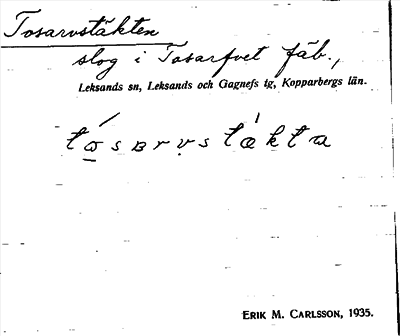 Tosarvstäkten
slog i Tosarfvet fäb.,
Leksands sn, Leksands och Gagnefs tg, Kopparbergs län.
tó̠sɐrvstǽkta
ERIK M. CARLSSON, 1935.